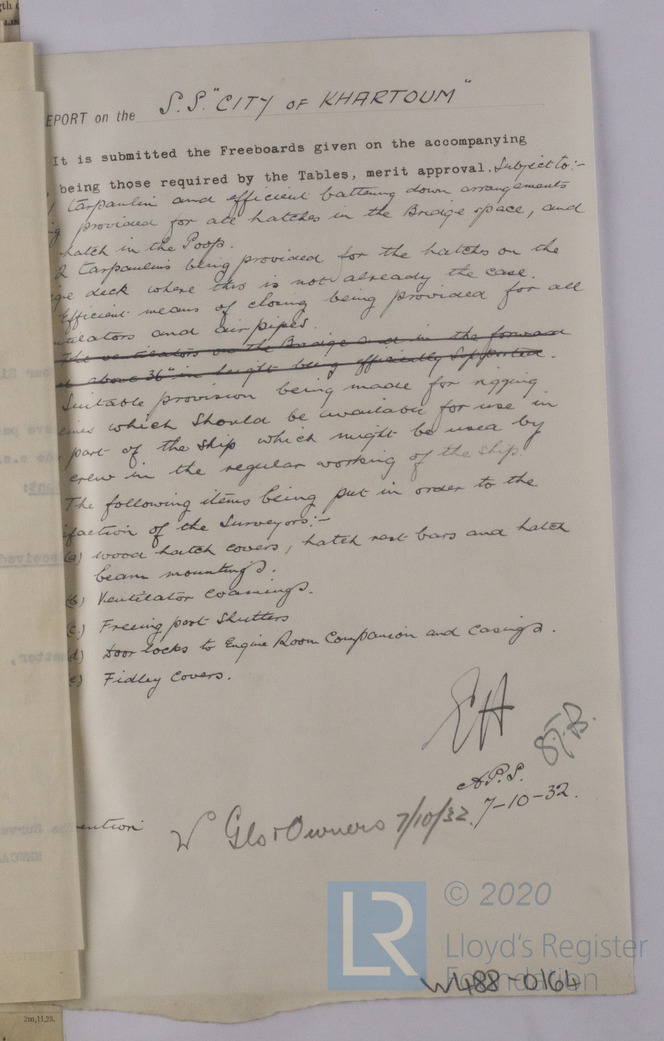 EPORT on the S.S. "CITY OF KHARTOUM"
It is submitted the Freeboards given on the accompanying
being those required by the Tables, merit approval. Subject to:-
Tarpaulin and efficient battening down arrangements
provided for all hatches in the Bridge space, and
hatch in the Poop.
2 Tarpaulins being provided for the hatches on the
deck where this is not already the case.
Efficient means of closing being provided for all
ventilators and air pipes.
The ventilators on the Bridge and in the forward
above 36" in height being efficiently supported.
Suitable provision being made for rigging
lines which should be available for use in
part of the ship which might be used by
crew in the regular working of the ship.
The following items being put in order to the
faction of the Surveyors:-
(a) wood hatch covers, hatch rest bars and hatch
beam mountings.
(b) Ventilator coamings.
(c) Freeing port Shutters
(d) Door locks to Engine Room Companion and casings.
(e) Fidley Covers.
EH
S.F.B.
A.P.S.
7-10-32.
ention
Gls + Owners 7/10/32.
LR © 2020
Lloyd's Register
Foundation
W488-0164